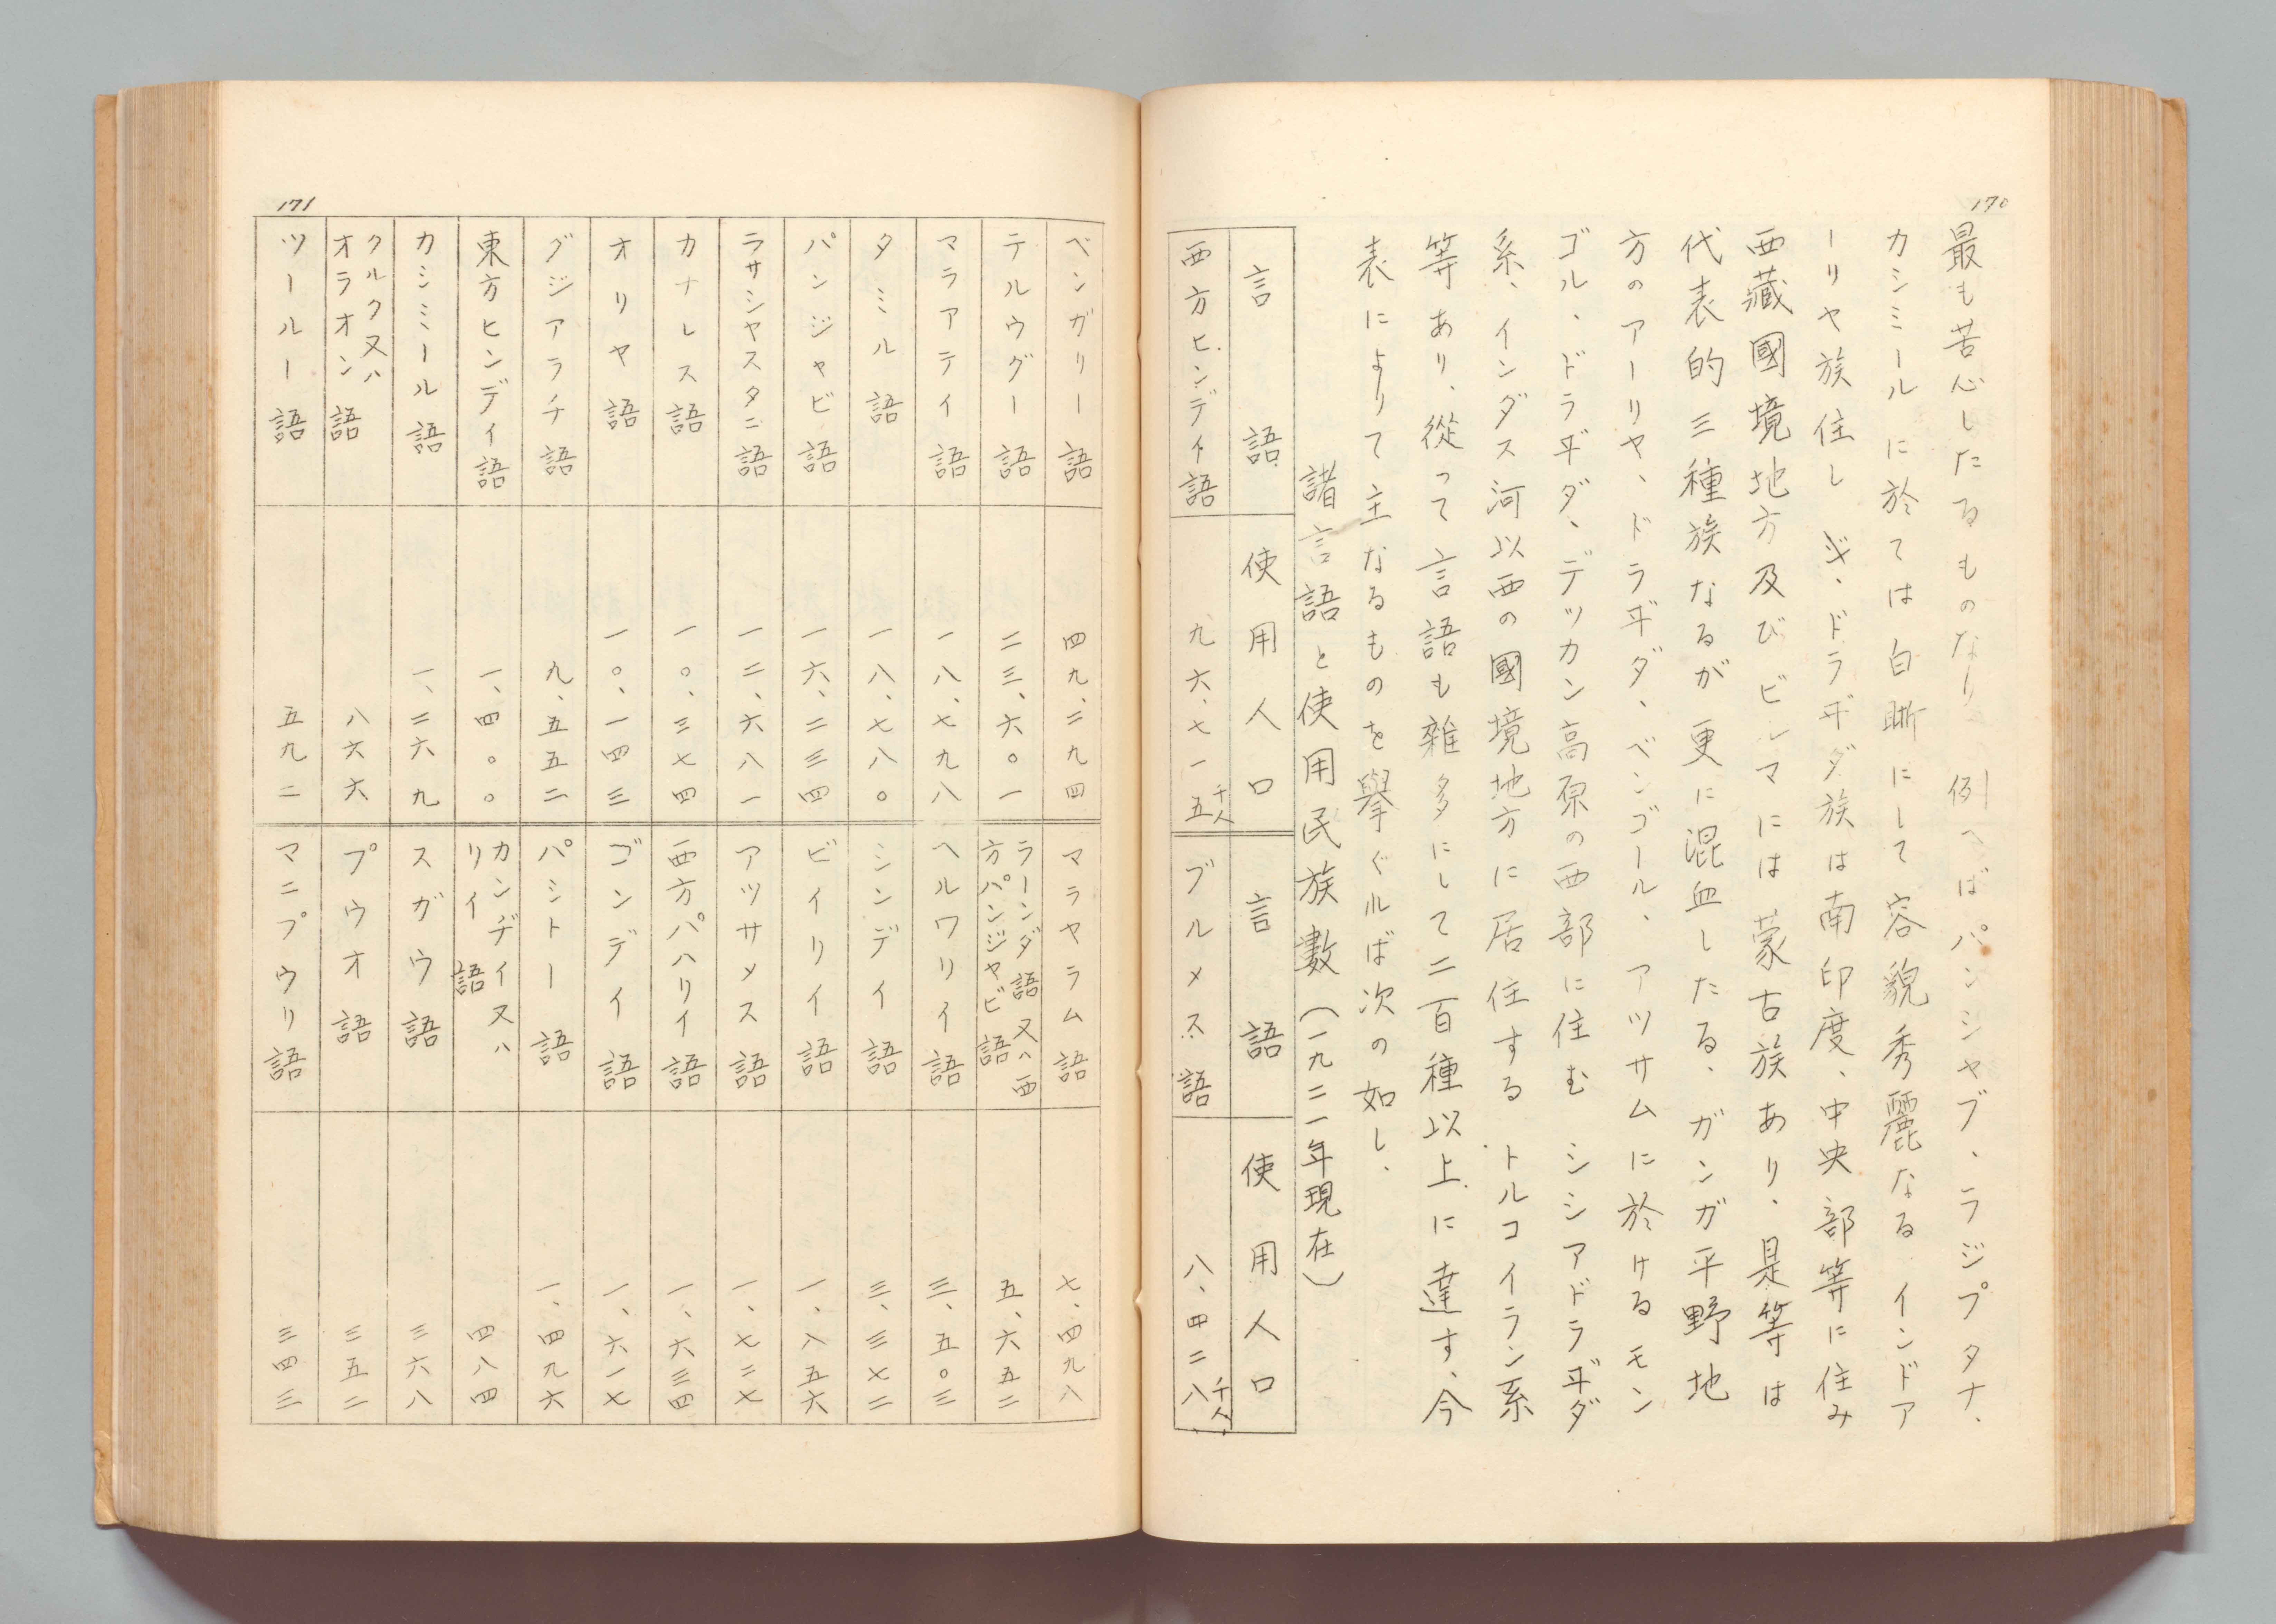 170
最も苦心したるものなり。例へばパンシャブ、ラジプタナ、
カシミールに於ては白晰にして容貌秀麗なるインドア
ーリヤ族住し、ドラギダ族は南印度、中央部等に住み
西藏國境地方及びビルマには蒙古族あり、是等は
代表的三種族なるが更に混血したる、ガンガ平野地
方のアーリヤ、ドラギダ、ベンゴール、アツサムに於けるモン
ゴル、ドラギダ、デツカン高原の西部に住むシシアドラギダ
系、インダス河以西の國境地方に居住するトルコイラン系
等あり、從って言語も雜多にして二百種以上に達す、今
表によりて主なるものを擧ぐルば次の如し、
諸言語と使用民族數(一九二一年現在)
言語 使用人口 言語 使用人口
西方ヒンデイ語 九六、七一五千人 ブルメス語 八、四二八千人
171
ベンガリー語 四九、二九四 マラヤラム語 七、四九八
テルウグー語 二三、六〇一 ラーンダ語又ハ西方パンジャビ語 五、六五二
マラアテイ語 一八、七九八 ヘルワリイ語 三、五〇三
タミル語 一八、七八〇 シンデイ語 三、三七二
パンジャビ語 一六、二三四 ビイリイ語 一、八五六
ラサシャスタニ語 一二、六八一 アツサメス語 一、七二七
カナレス語 一〇、三七四 西方パハリイ語 一、六三四
オリヤ語 一〇、一四三 ゴンデイ語 一、六一七
グジアラチ語 九、五五二 パシトー語 一、四九六
東方ヒンデイ語 一、四〇〇 カンヂイ又ハリイ語 四八四
カシミール語 一、二六九 スガウ語 三六八
クルク又ハオラオン語 八六六 プウオ語 三五二
ツールー語 五九二 マニプウリ語 三四三